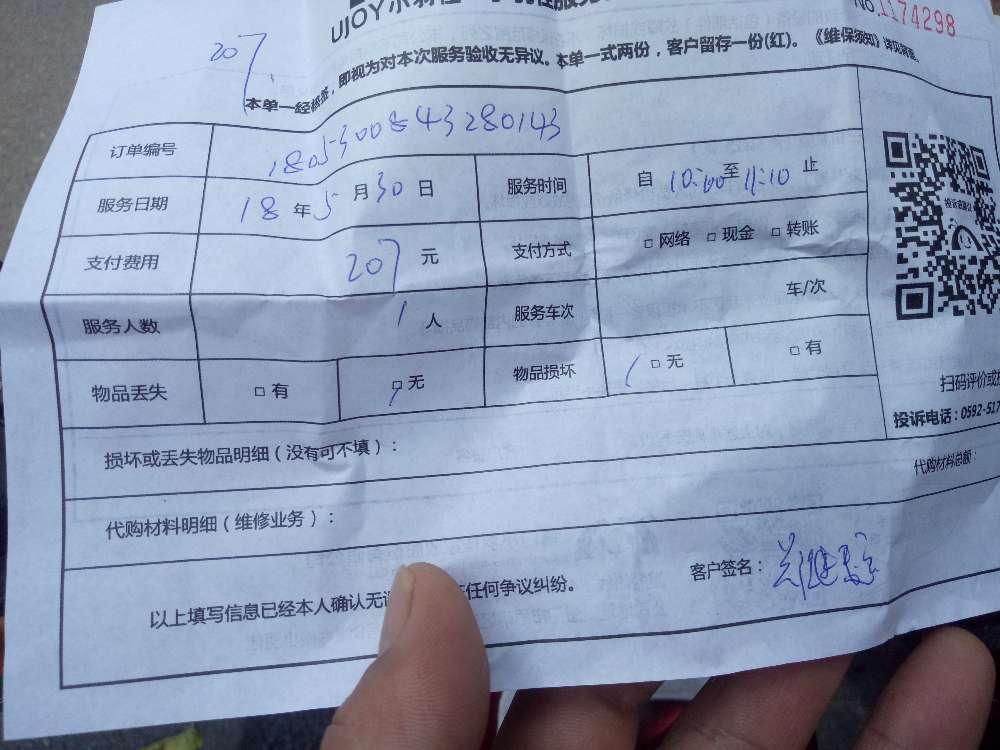 NO.1174298
207
本单一经核签，即视为对本次服务验收无异议。本单一式两份，客户留存一份(红)。《维保须知》详见背面。
订单编号 1805300843280143
服务日期 18 年 5 月 30 日 服务时间 自 10:00 至 11:10 止
支付费用 207 元 支付方式 □ 网络 □ 现金 □ 转账
服务人数 1 人 服务车次 车/次
物品丢失 □ 有 □ 无 物品损坏 □ 无 □ 有
扫码评价或
投诉电话：0592-517
损坏或丢失物品明细（没有可不填）：
代购材料总额：
代购材料明细（维修业务）：
以上填写信息已经本人确认无 任何争议纠纷。
客户签名：